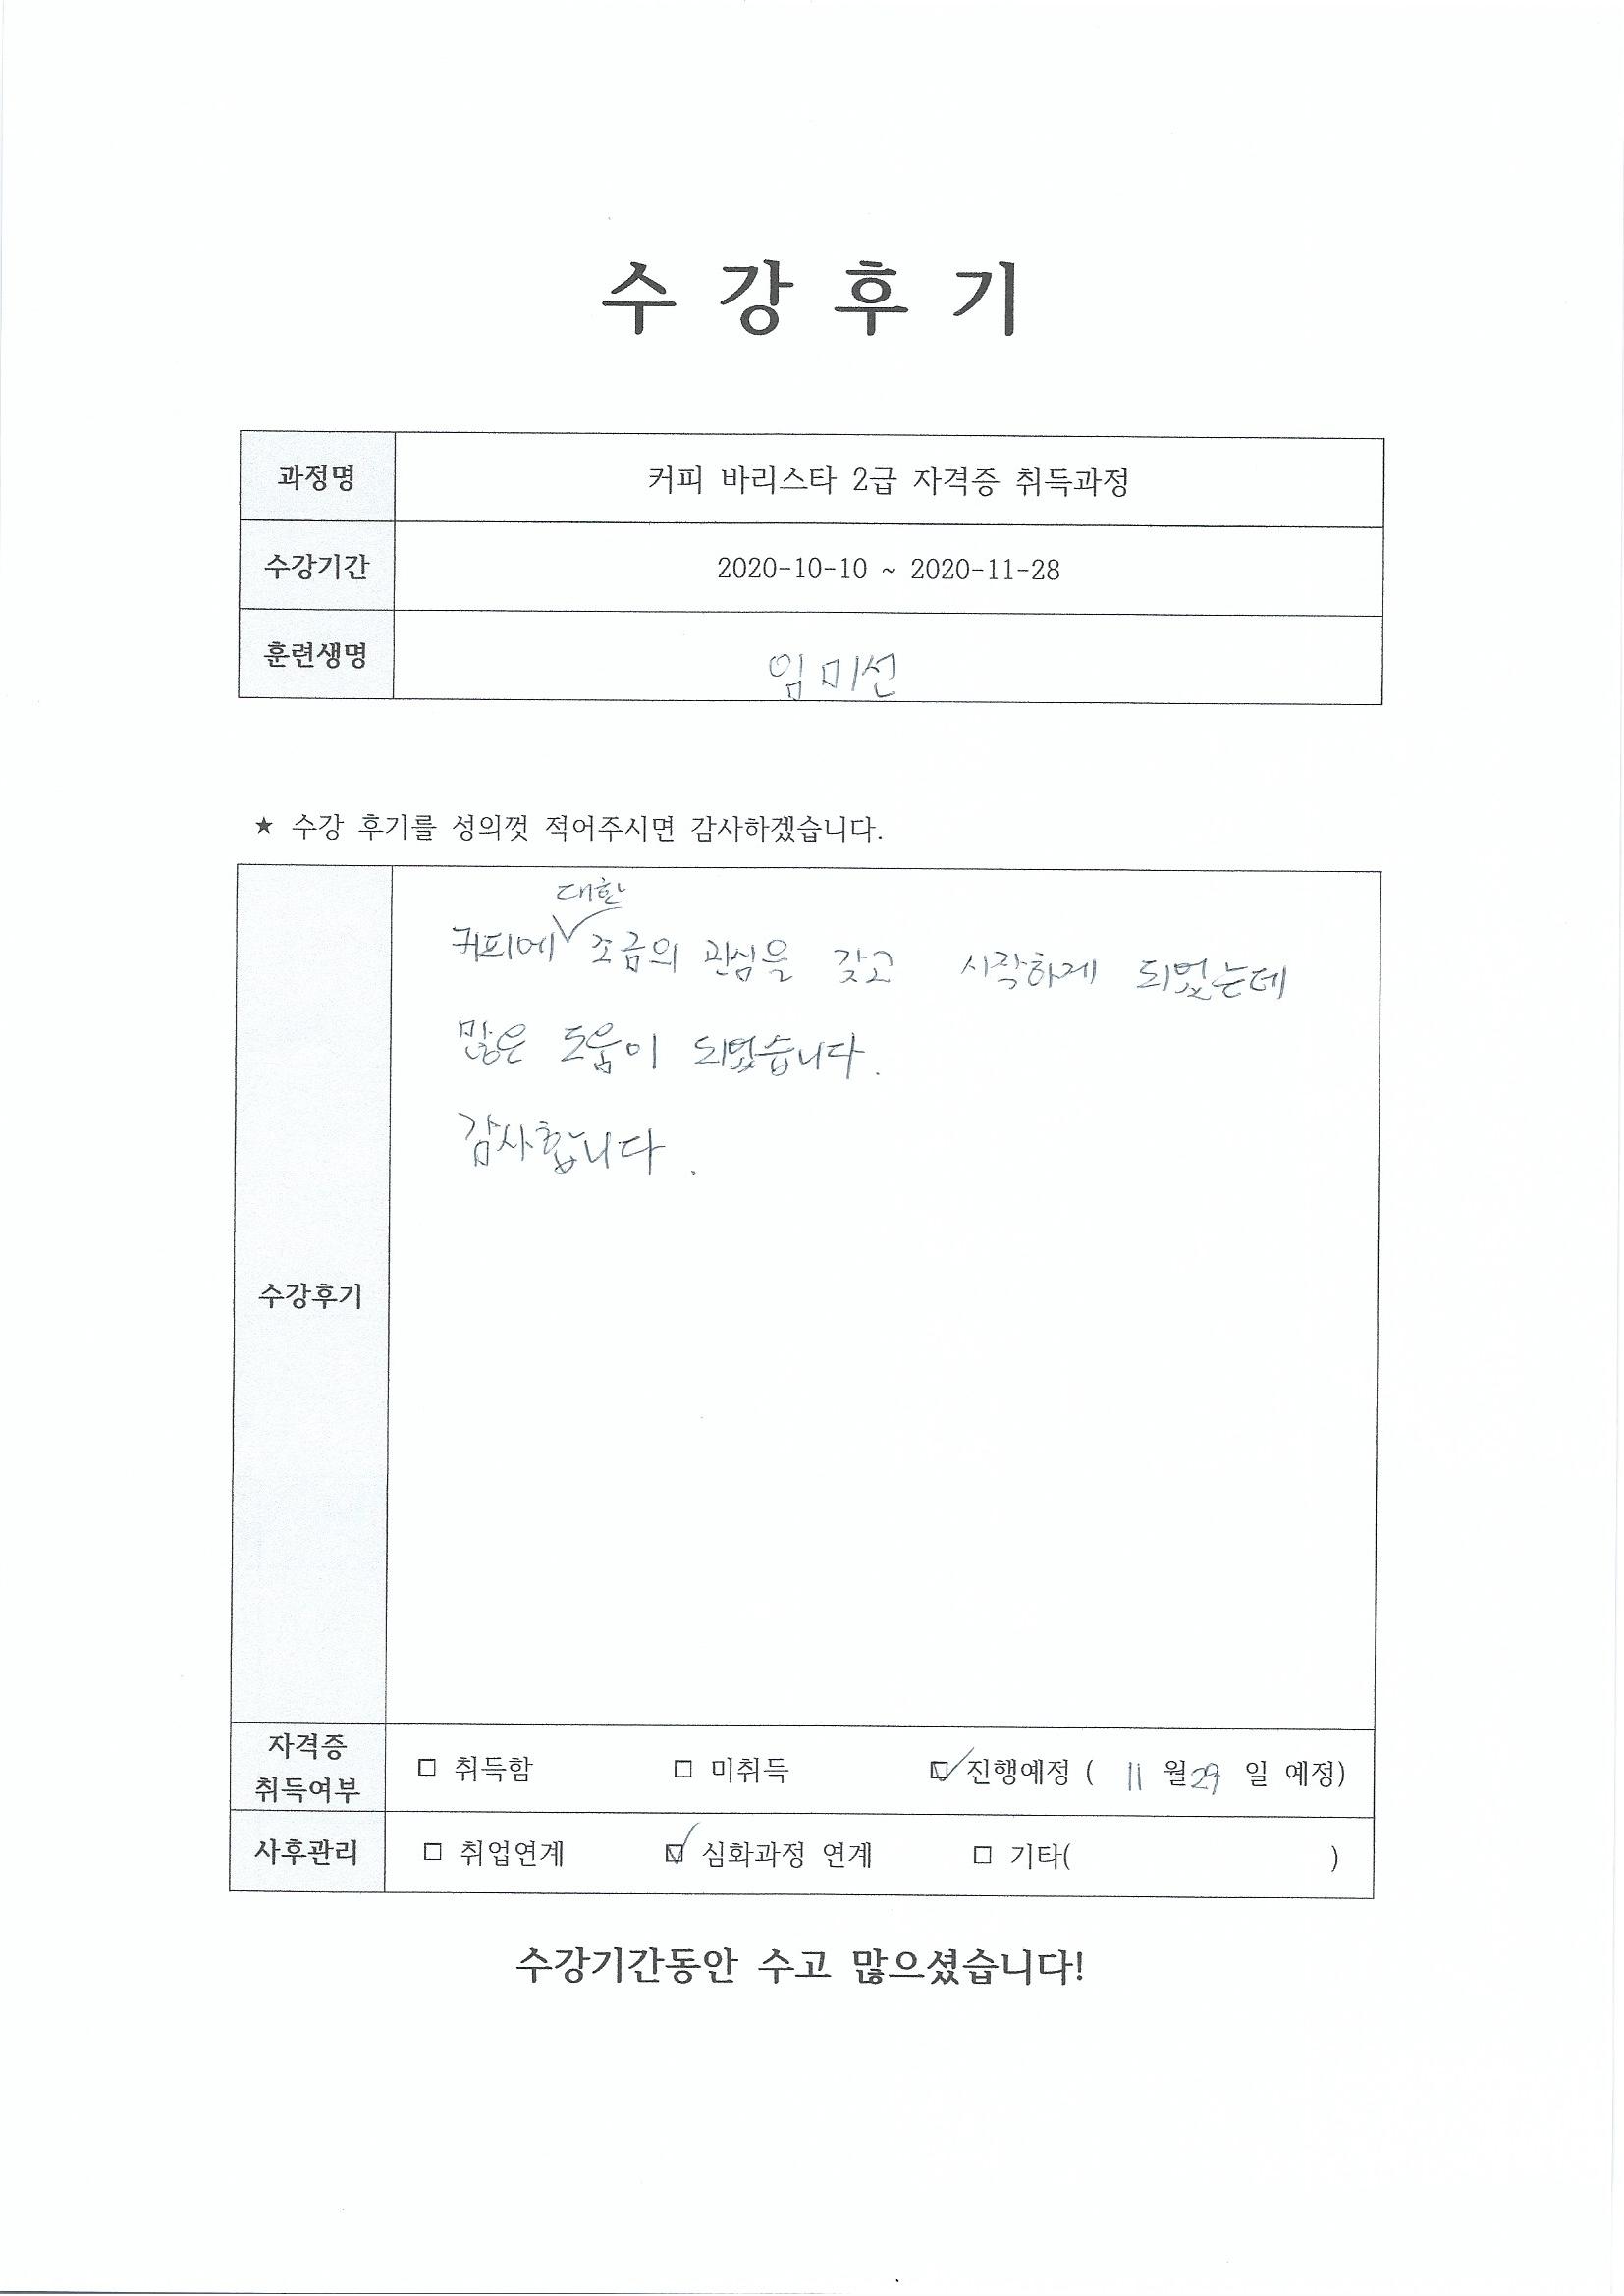 수 강 후 기
과정명 커피 바리스타 2급 자격증 취득과정
수강기간 2020-10-10 ~ 2020-11-28
훈련생명 임미선
★ 수강 후기를 성의껏 적어주시면 감사하겠습니다.
대한
커피에 ∨ 조금의 관심을 갖고 시작하게 되었는데
많은 도움이 되었습니다.
감사합니다.
수강후기
자격증
취득여부
□ 취득함 □ 미취득 ☑ 진행예정 ( 11 월 29 일 예정)
사후관리 □ 취업연계 ☑ 심화과정 연계 □ 기타( )
수강기간동안 수고 많으셨습니다!